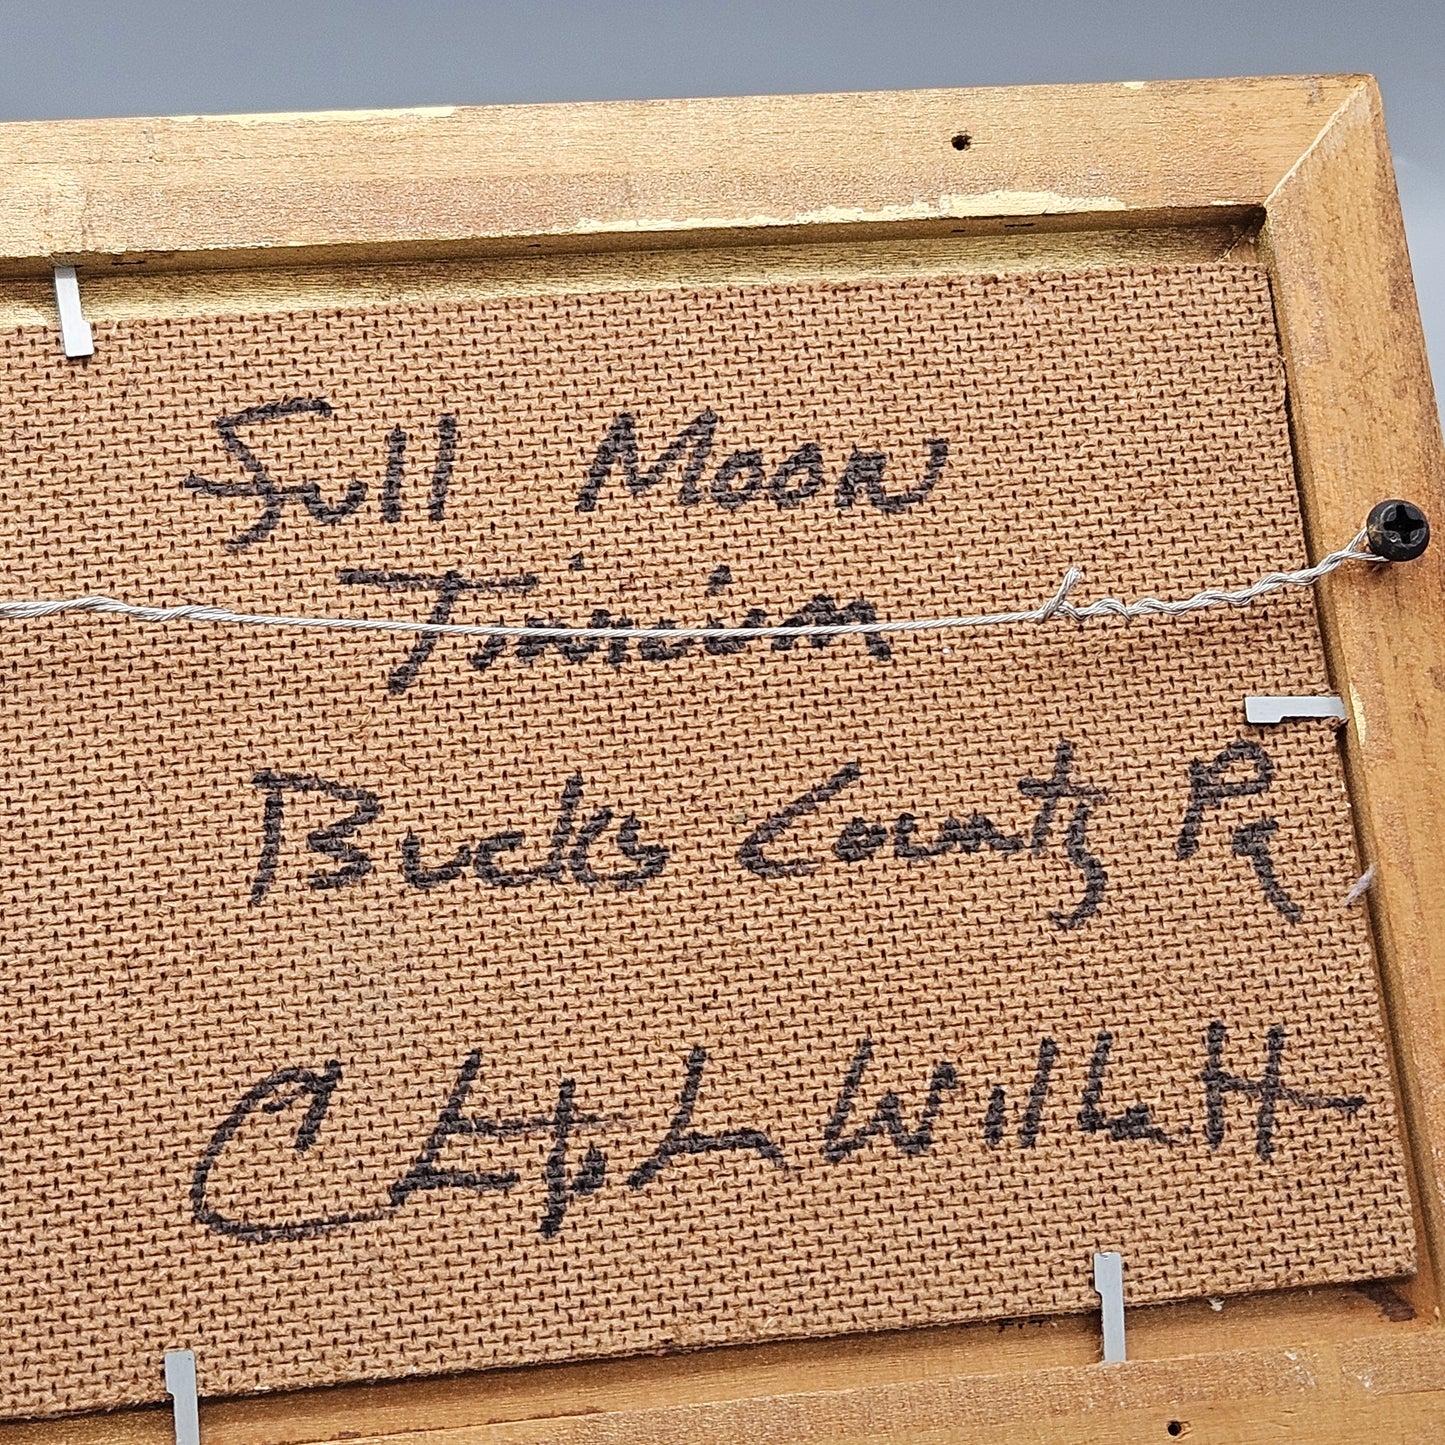 Full Moon
Tinicum
Bucks County Pa
Willett